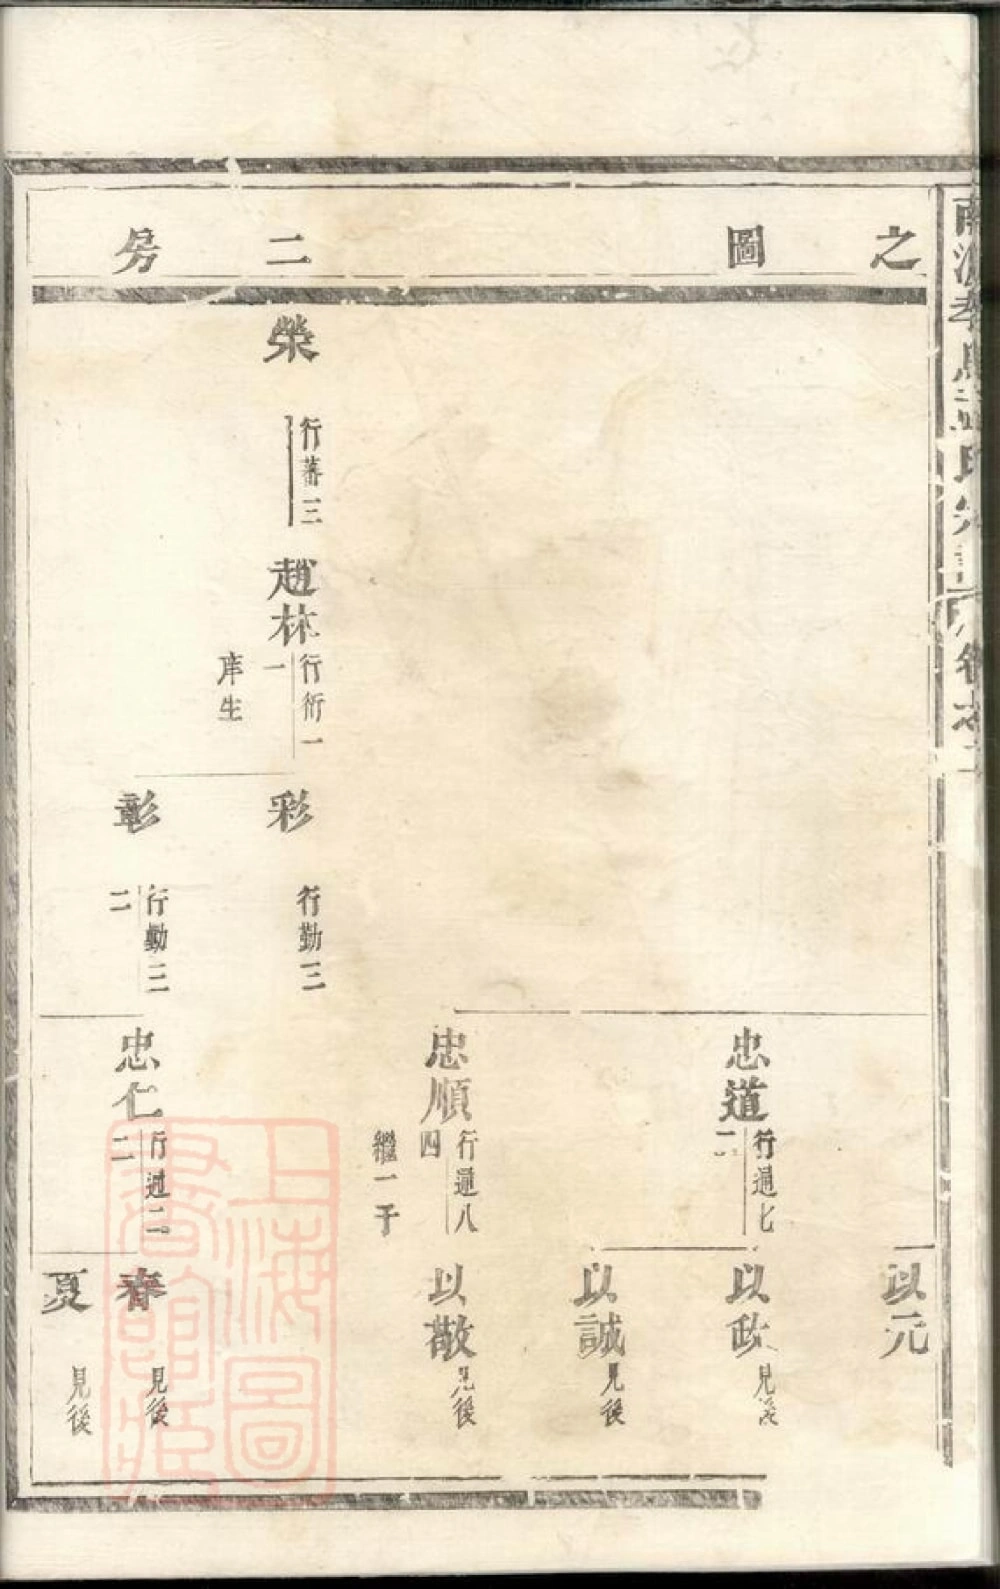 之圖
二房
榮
行蕃三
趙林
行衍一
一
庠生
彩
行勤三
彰
行勤三
二
忠道
行通七
忠順
行通八
四
繼一子
忠仁
行通二
二
以元
以政
見後
以誠
見後
以敬
見後
春
見後
夏
見後
上海圖
書館藏